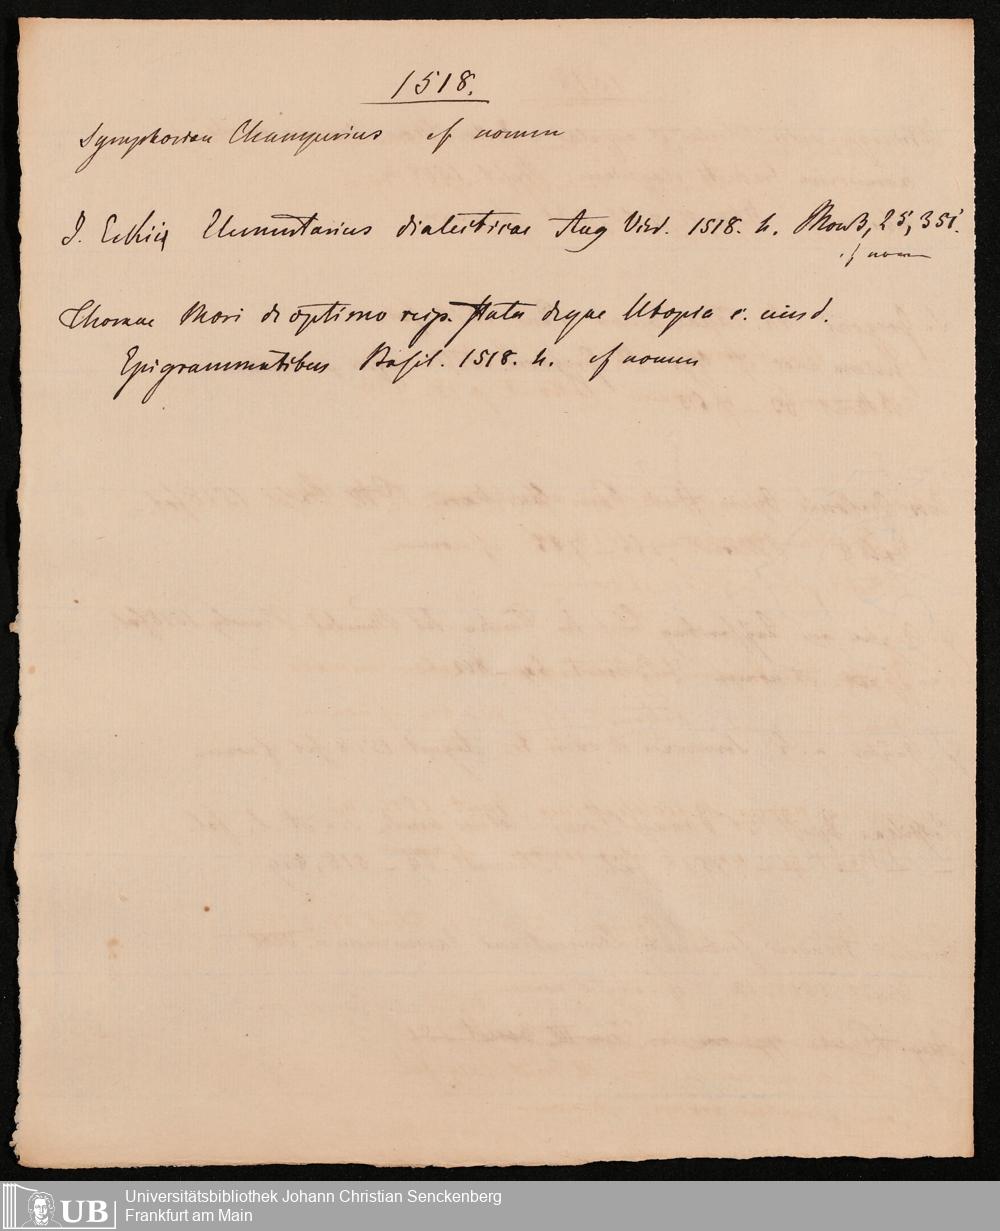 1518.
Symphorian Champerius cf nomen
J. Eckii Elementarius dialecticae Aug Vind. 1518. 4. 3, 25, 351.
cf nom
Thomae Mori de optimo reip. statu deque Utopia c. eiusd.
Epigrammatibus Basil. 1518. 4. cf nomen
UB
Universitätsbibliothek Johann Christian Senckenberg
Frankfurt am Main